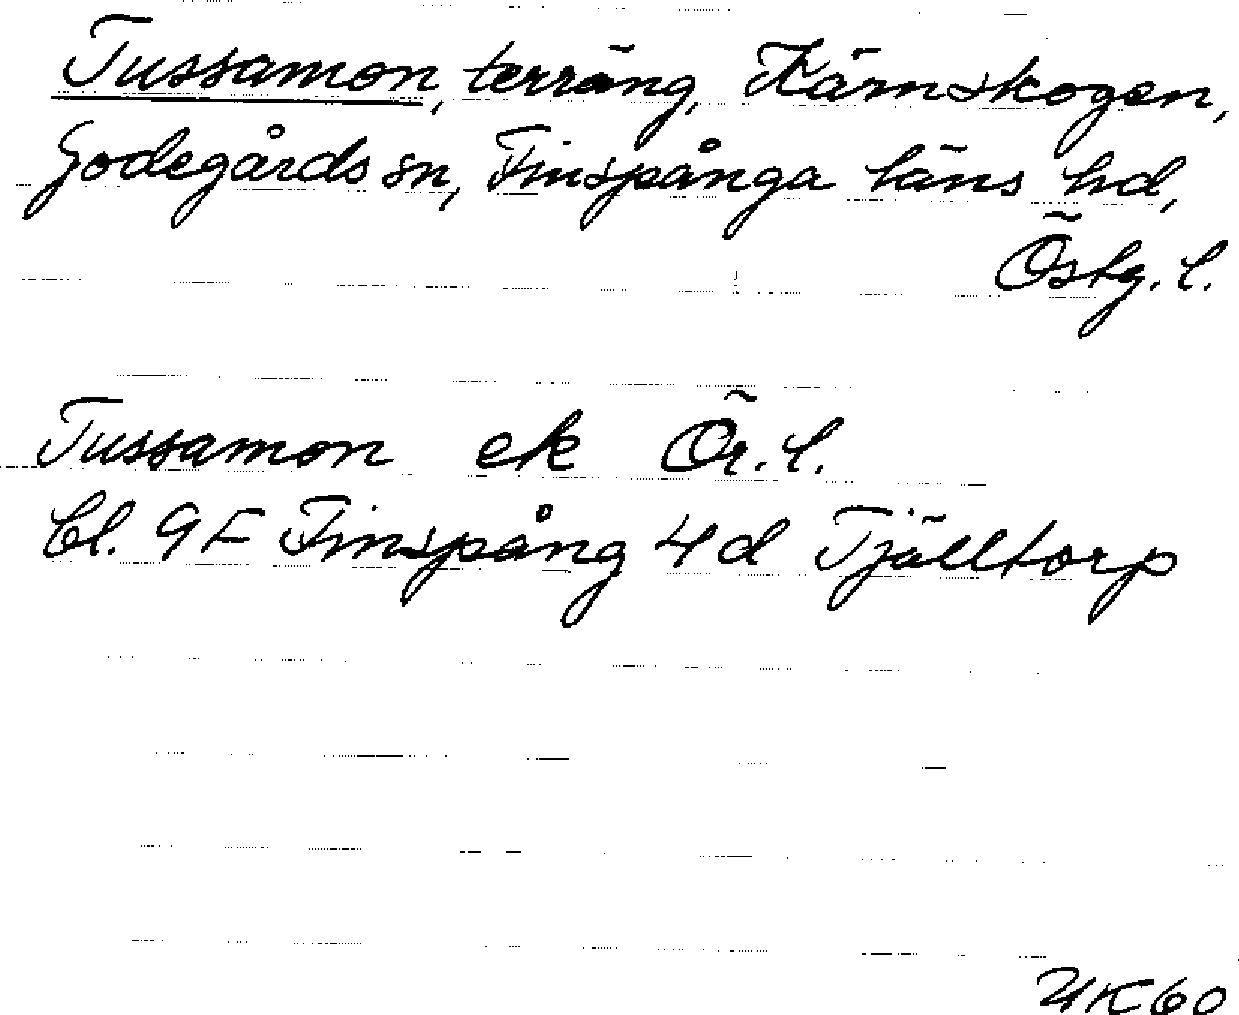 Tussamon, terräng, Kärnskogen,
Godegårds sn, Finspånga läns hd,
Östg. l.
Tussamon ek Ör. l.
bl. 9F Finspång 4d Tjälltorp
UK60